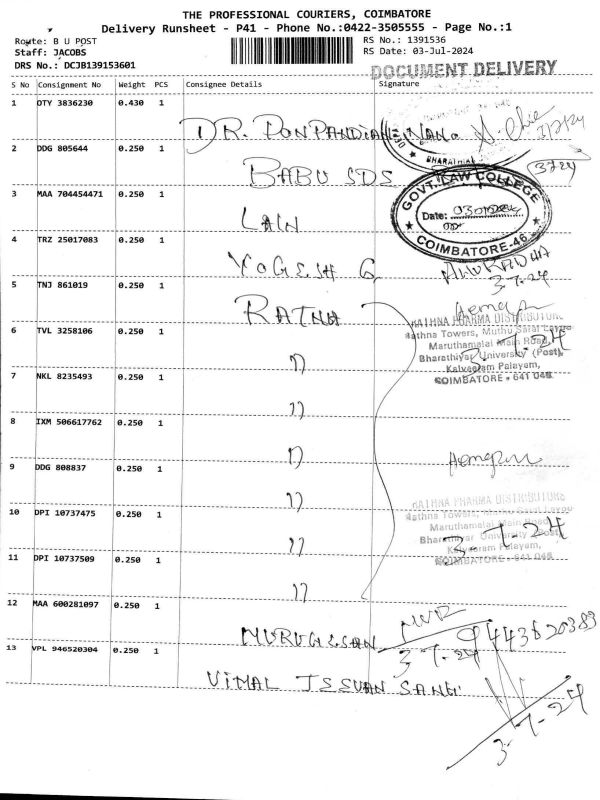 THE PROFESSIONAL COURIERS, COIMBATORE
Delivery Runsheet - P41 - Phone No.:0422-3505555 - Page No.:1
Route: B U POST
Staff: JACOBS
DRS No.: DCJB139153601
RS No.: 1391536
RS Date: 03-Jul-2024
DOCUMENT DELIVERY
S No Consignment No Weight PCS Consignee Details Signature
1 OTY 3836230 0.430 1 DR. PONPANDIAN
BHARATHIAR
2 DDG 805644 0.250 1 BABU SDS
3 MAA 704454471 0.250 1 LAIN
GOVT. LAW COLLEGE
Date:
COIMBATORE-46
4 TRZ 25017083 0.250 1 YOGESH G
ANURADHA
3-7-24
5 TNJ 861019 0.250 1 RATNA
RATHNA PHARMA DISTRIBUTORS
Rathna Towers, Muthu Saral Layou
Maruthamalai Main Road,
Bharathiyar University (Post),
Kalveeram Palayam,
COIMBATORE - 641 046
3-7-24
6 TVL 3258106 0.250 1 "
7 NKL 8235493 0.250 1 "
8 IXM 506617762 0.250 1 "
9 DDG 808837 0.250 1 "
10 DPI 10737475 0.250 1 "
RATHNA PHARMA DISTRIBUTORS
Rathna Towers, Muthu Saral Layou
Maruthamalai Main Road,
Bharathiyar University (Post),
Kalveeram Palayam,
COIMBATORE - 641 046
3-7-24
11 DPI 10737509 0.250 1 "
12 MAA 600281097 0.250 1 MURUGESAN
3-7-24
9443620383
13 VPL 946520304 0.250 1 VIMAL JESUAN SANG
3-7-24